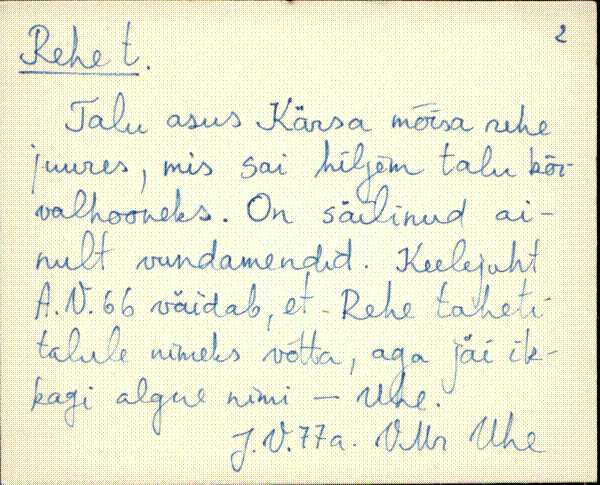 2
Rehe t.
Talu asus Kärsa mõisa rehe
juures, mis sai hiljem talu kõr-
valhooneks. On säilinud ai-
nult vundamendid. Keelejuht
A.V. 66 väidab, et Rehe taheti
talule nimeks võtta, aga jäi ik-
kagi algne nimi — Uhe.
J.V. 77a. VMr Uhe